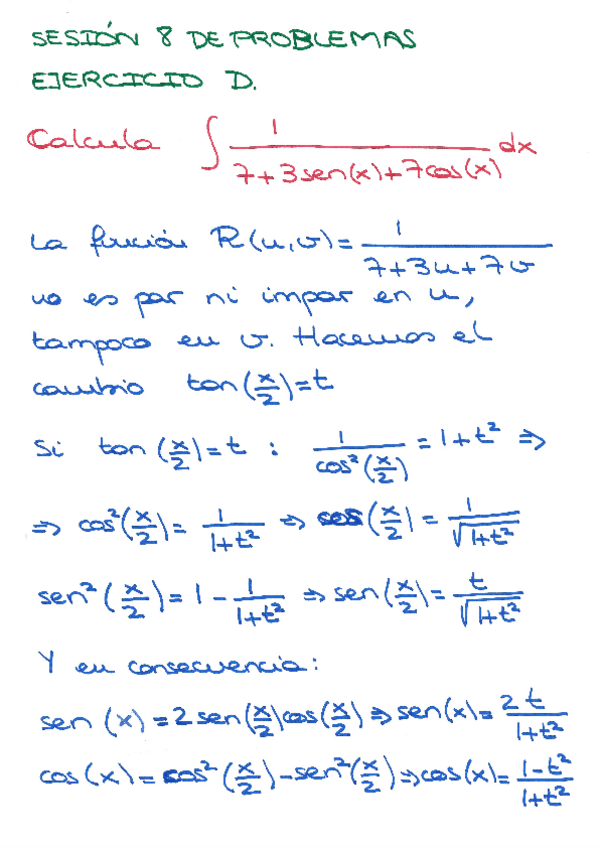 SESIÓN 8 DE PROBLEMAS
EJERCICIO D.
Calcula ∫ 1/(7+3sen(x)+7cos(x)) dx
La función R(u,v)= 1/(7+3u+7v)
no es par ni impar en u,
tampoco en v. Hacemos el
cambio tan(x/2)=t
Si tan(x/2)=t : 1/cos²(x/2) = 1+t² ⇒
⇒ cos²(x/2)= 1/(1+t²) ⇒ cos(x/2)= 1/√(1+t²)
sen²(x/2)= 1 - 1/(1+t²) ⇒ sen(x/2)= t/√(1+t²)
Y en consecuencia:
sen(x)=2sen(x/2)cos(x/2) ⇒ sen(x)= 2t/(1+t²)
cos(x)= cos²(x/2)-sen²(x/2) ⇒ cos(x)= (1-t²)/(1+t²)